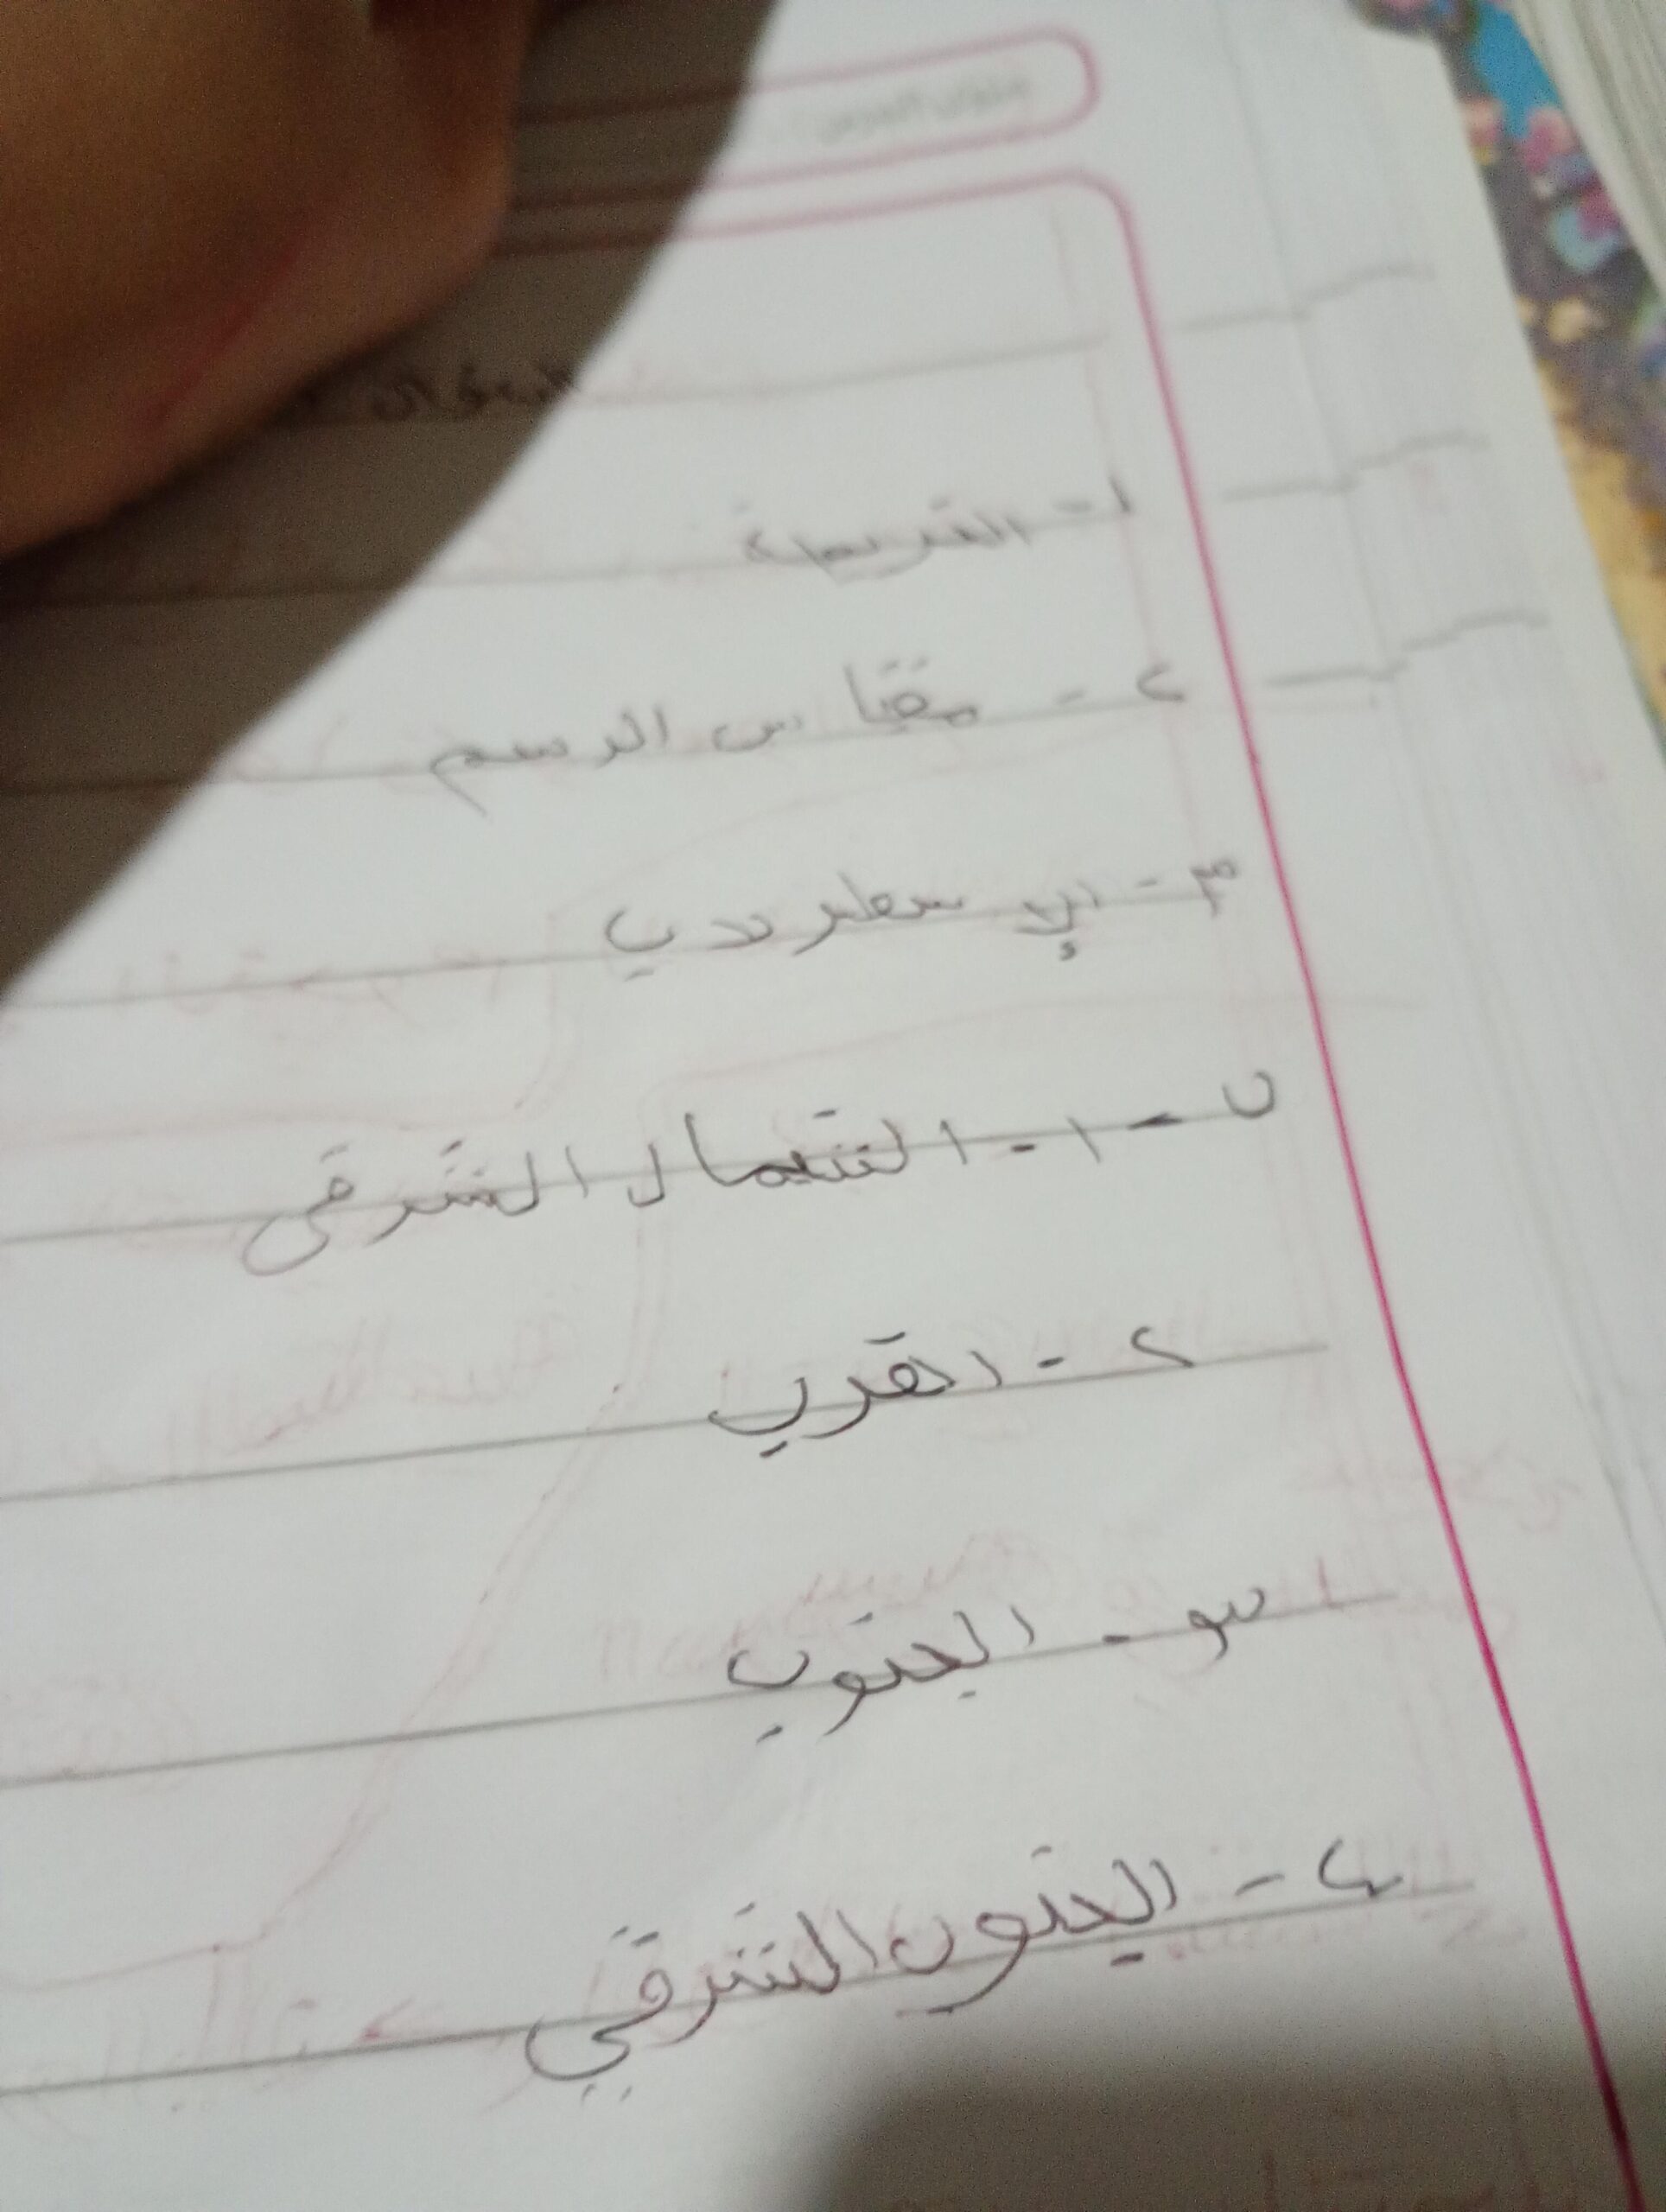 عنوان الدرس:
١- القريطة
٢- مقياس الرسم
٣- إلا سطر ددب
ں - ١- الشمال الشرقى
٢- القرب
٣- الجنوب
٤- الجنوب الشرقي